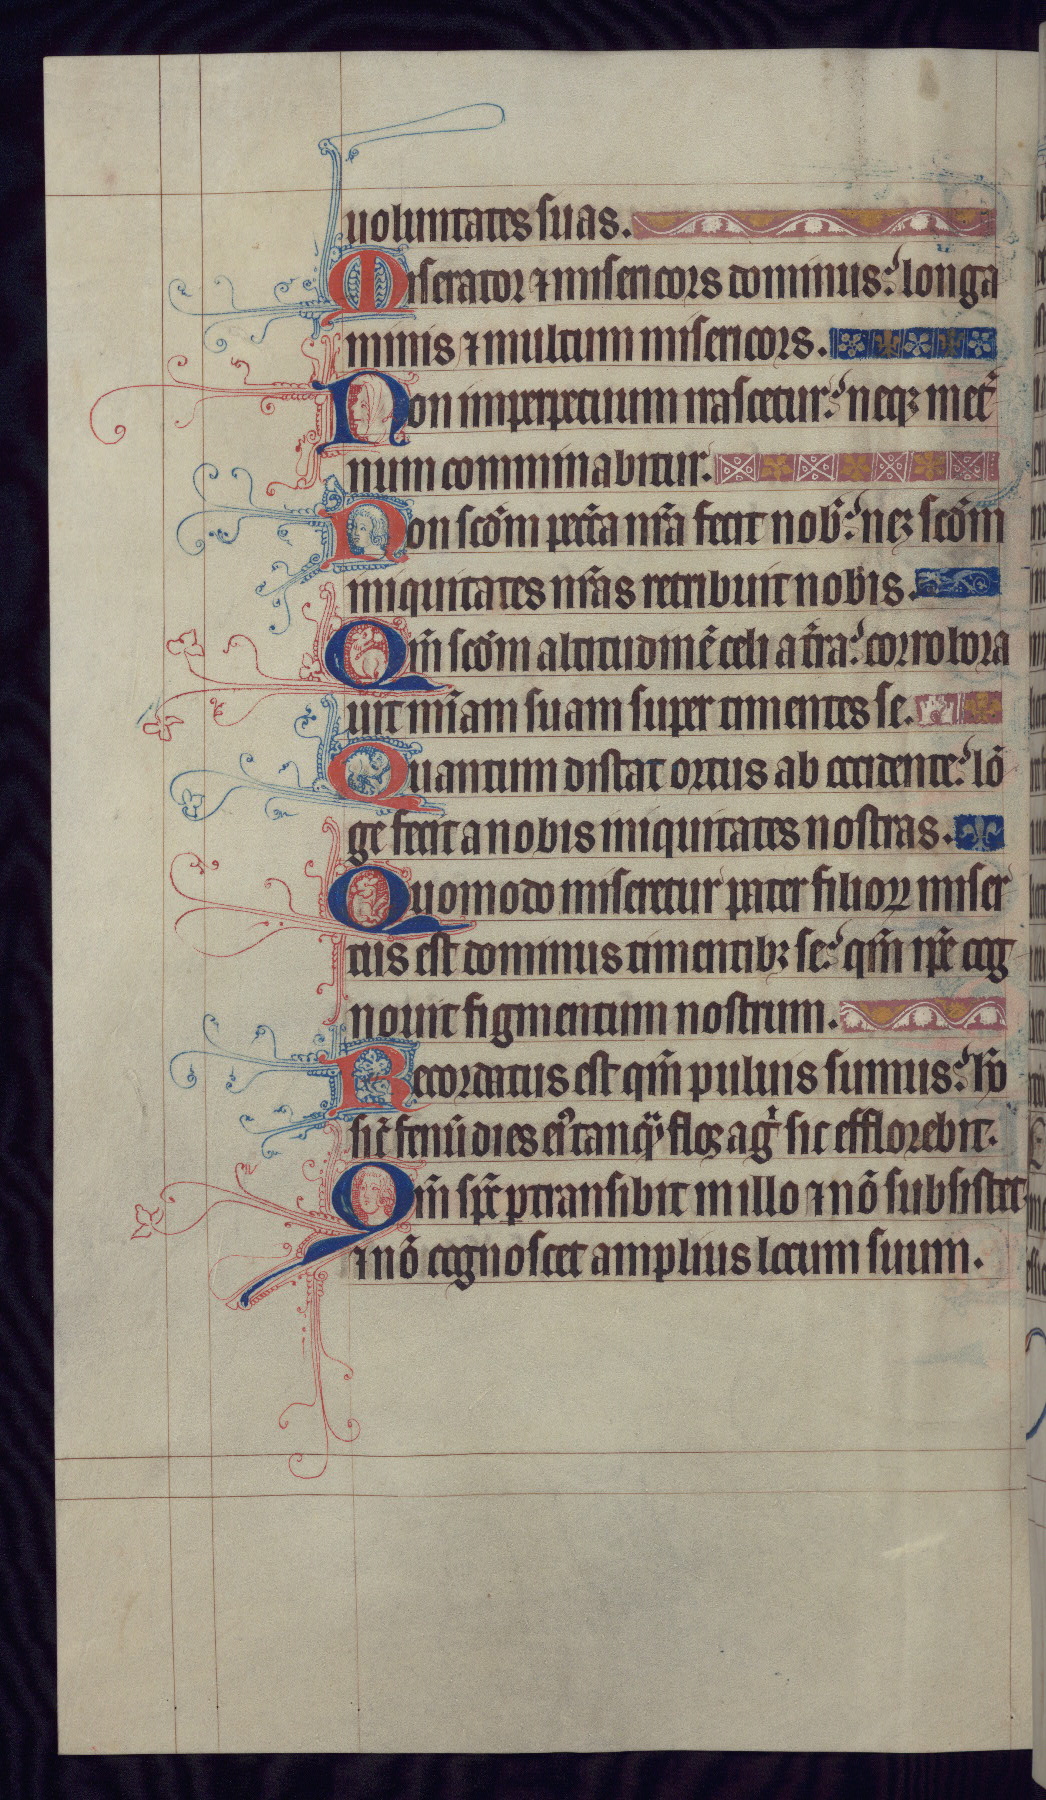 uoluntates suas.
Miserator ⁊ misericors dominus: longa
nimis ⁊ multum misericors.
Non imperpetuum irascetur: neqꝫ in et̾
num comminabitur.
Non scd̄m pcc̄ta nr̄a fecit nob̾: neqꝫ scd̄m
iniquitates nr̄as retribuit nobis.
Qm̄ scd̄m altitudinē celi a t̾ra: corrobora
uit mīam suam super timentes se.
Quantum distat ortus ab occidente: lō
ge fecit a nobis iniquitates nostras.
Quomodo miseretur pater filioꝝ miser
tus est dominus timentibꝫ se: qm̄ ip̄e cog
nouit figmentum nostrum.
Recordatus est qm̄ puluis sumus: hō
sic̄ fenū dies ei᾽ tanqͣ flos ag̾ sic efflorebit.
Qm̄ sp̄c ꝑtransibit in illo ⁊ nō subsistet
⁊ nō cognoscet amplius locum suum.